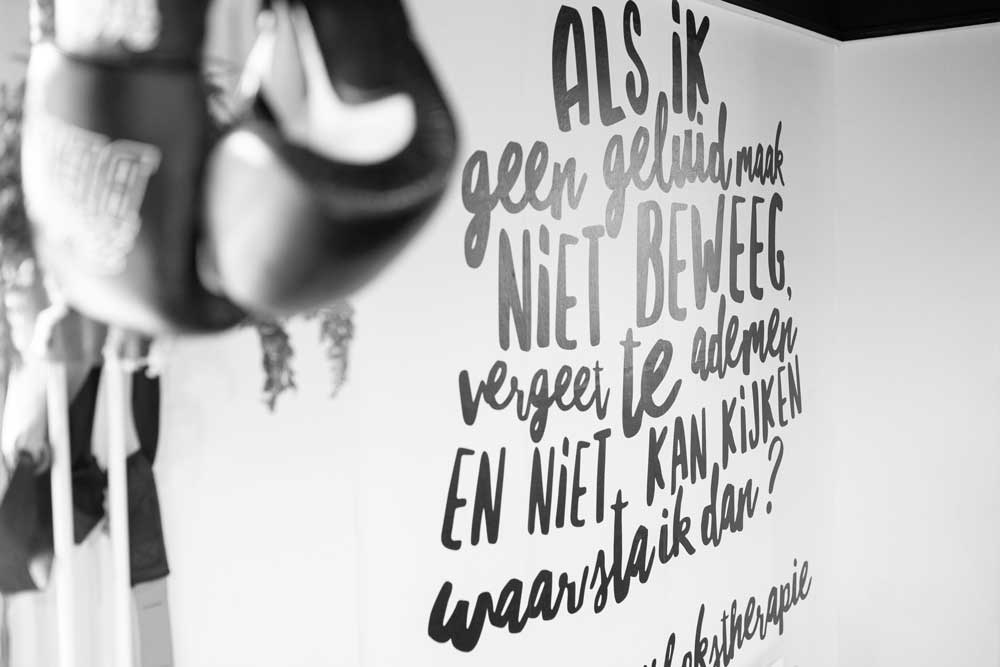 ALS iK
geen geluid maak
NiET BEWEEG,
vergeet te ademen
EN NiET KAN KIJKEN
waar sta ik dan?